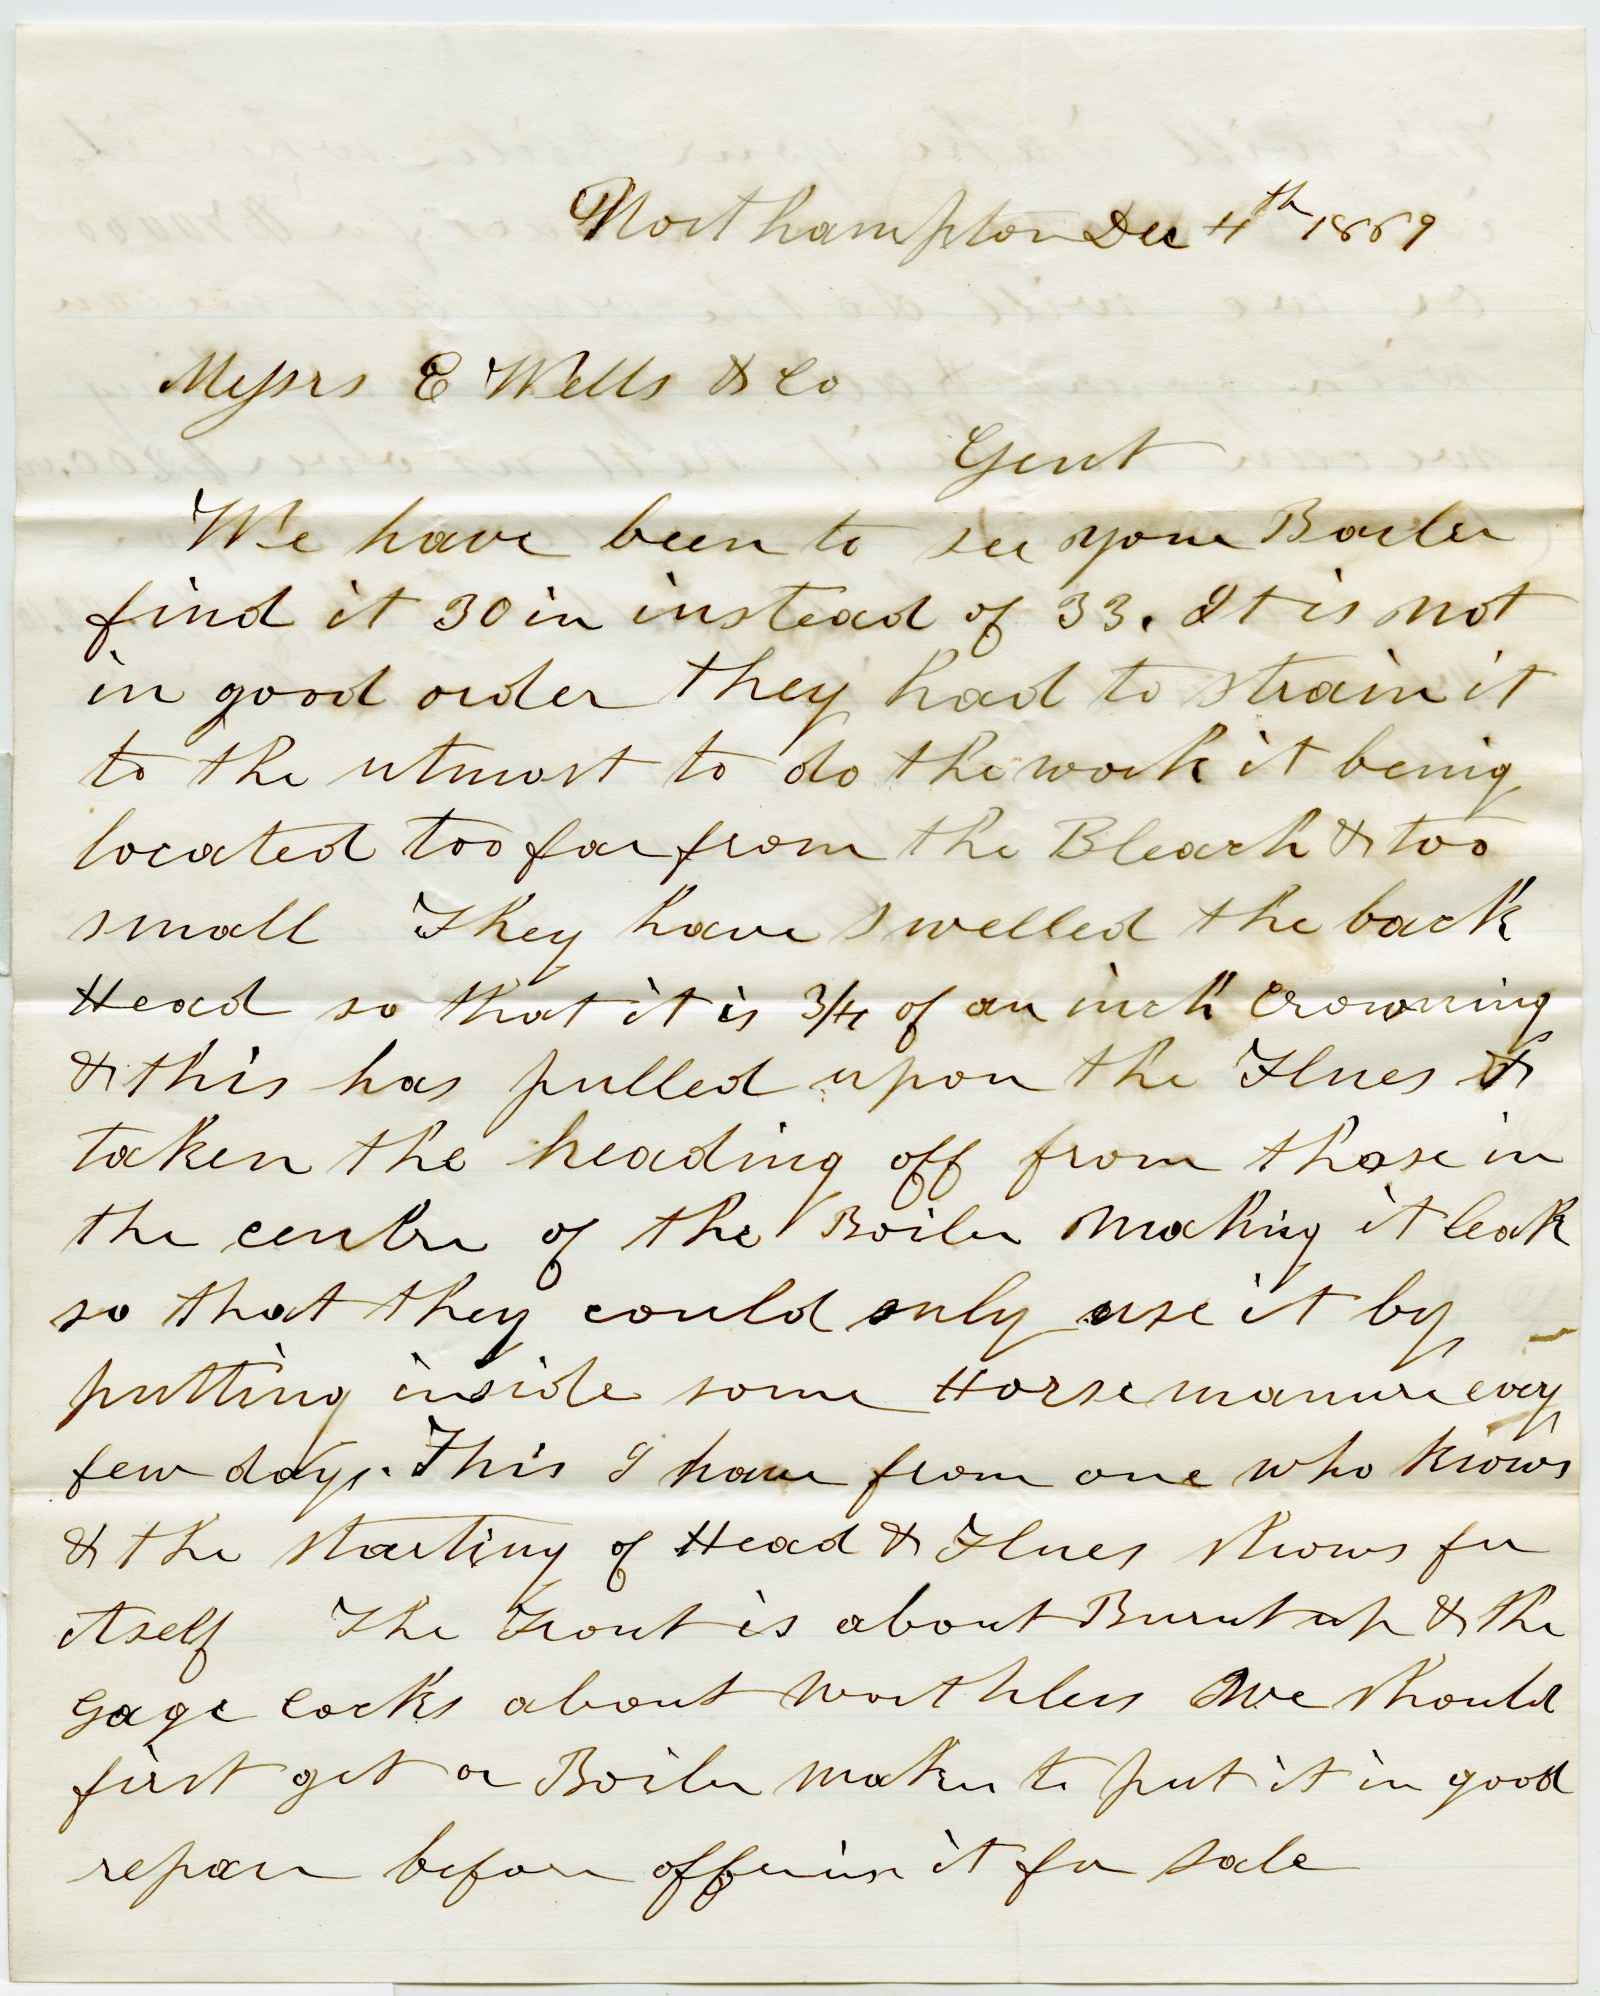 Northampton Dec 4th 1869
Messrs E Wells & Co
Gent
We have been to see your Boiler
find it 30 in instead of 33. It is not
in good order they had to strain it
to the utmost to do the work it being
located too far from the Bleach & too
small They have swelled the back
Head so that it is 3/4 of an inch Crowning
& this has pulled upon the Flues &
taken the heading off from those in
the centre of the Boiler making it leak
so that they could only use it by
putting inside some Horse manure every
few days. This I have from one who knows
& the starting of Head & Flues shows for
itself The Front is about Burnt up & the
Gage Cocks about worthless We should
first get a Boiler maker to put it in good
repair before offering it for sale